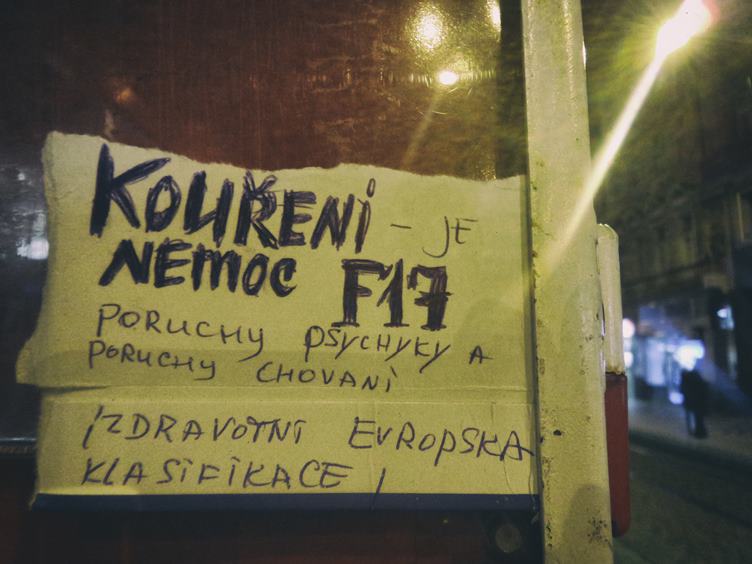 KOUŘENÍ – JE
NEMOC F17
PORUCHY PSYCHYKY A
PORUCHY CHOVANÍ
/ZDRAVOTNÍ EVROPSKA
KLASIFIKACE /